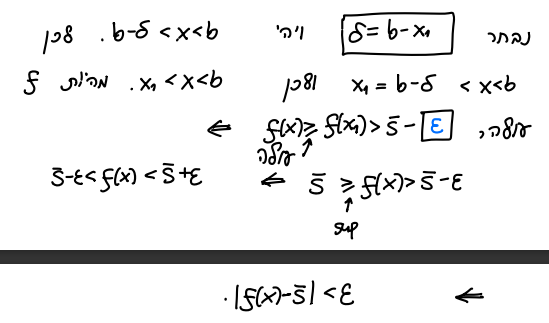 נבחר δ = b - x₁ ויהי b-δ < x < b. לכן
x₁ = b-δ < x < b ולכן x₁ < x < b. מהיות f
עולה, f(x) ≥ f(x₁) > s̄ - ε ⇐
עולה
s̄ ≥ f(x) > s̄ - ε ⇐ s̄ - ε < f(x) < s̄ + ε
sup
⇐ |f(x) - s̄| < ε.